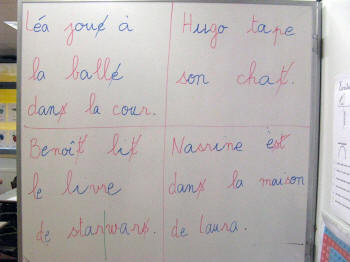 Léa joue à
la balle
dans la cour.
Hugo tape
son chat.
Benoît lit
le livre
de starwars.
Nasrine est
dans la maison
de laura.